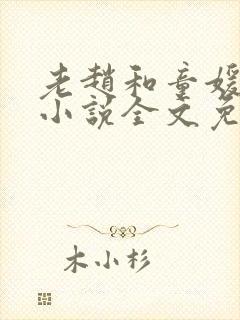 老趙和童媛
小說全文免
木小杉